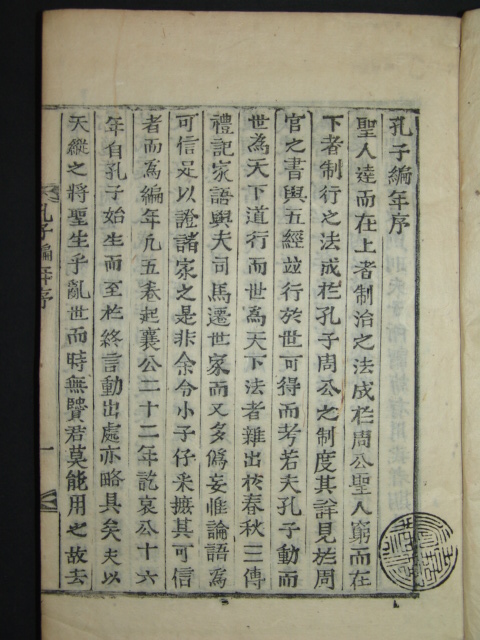 孔子編年序
聖人達而在上者制治之法成於周公聖人窮而在
下者制行之法成於孔子周公之制度其詳見於周
官之書與五經並行於世可得而考若夫孔子動而
世為天下道行而世為天下法者雜出於春秋三傳
禮記家語與夫司馬遷世家而又多僞妄惟論語爲
可信足以證諸家之是非余令小子仔采摭其可信
者而爲編年凡五卷起襄公二十二年訖哀公十六
年自孔子始生而至於終言動出處亦略具矣夫以
天縱之將聖生乎亂世而時無賢君莫能用之故去
孔子編年序
一